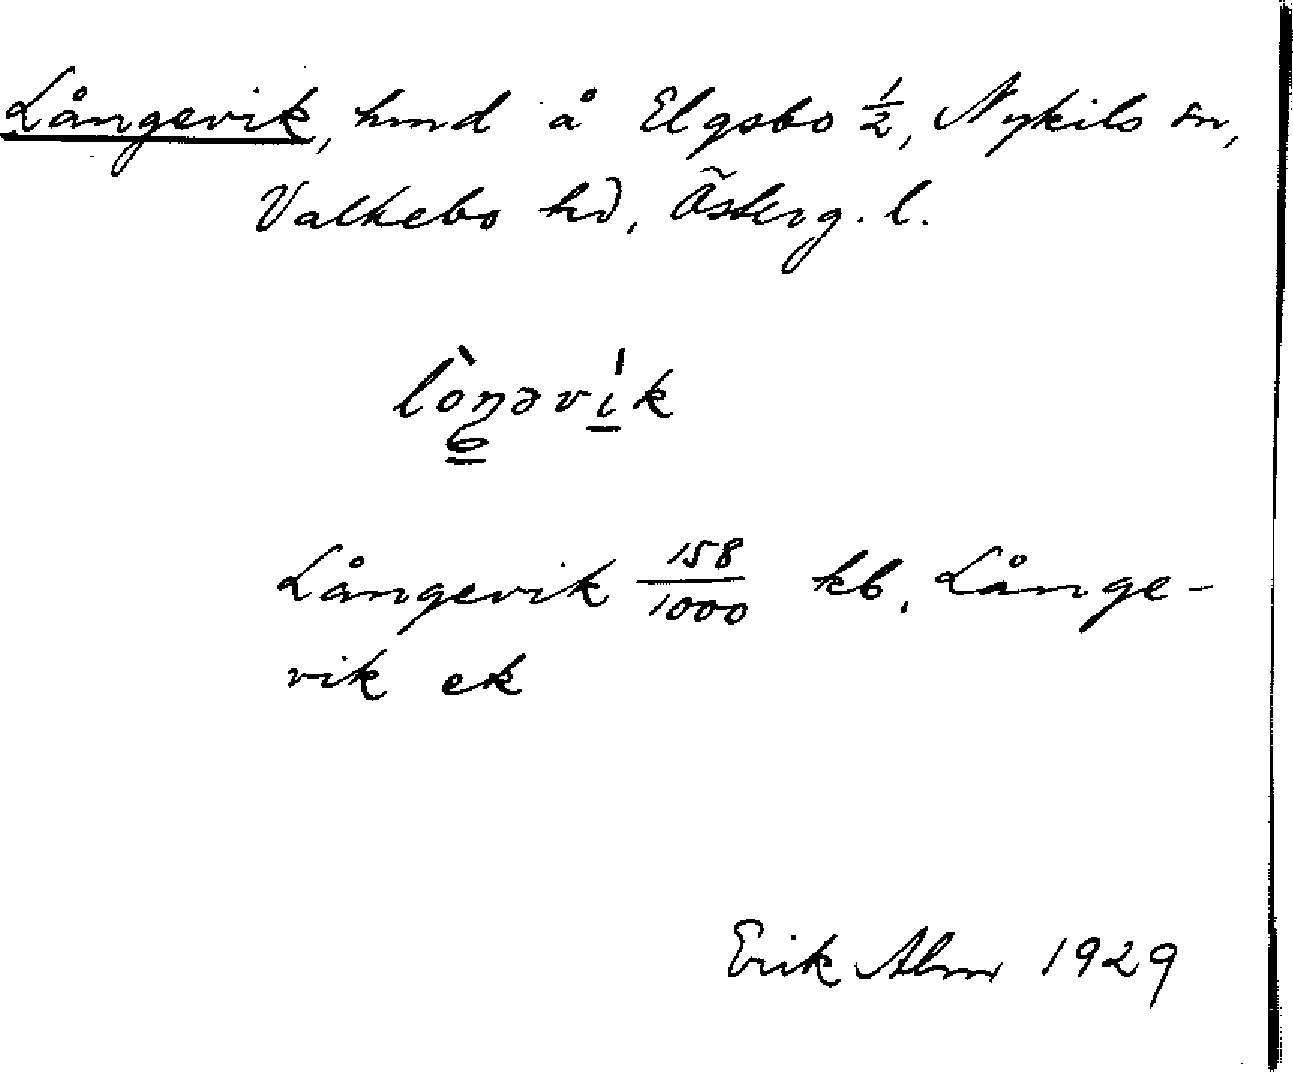 Långevik, hmd å Elgsbo ½, Nykils sn,
Valkebo hd, Österg. l.
lòŋəvík
Långevik 158/1000 kb, Långe-
vik ek
Erik Alm 1929